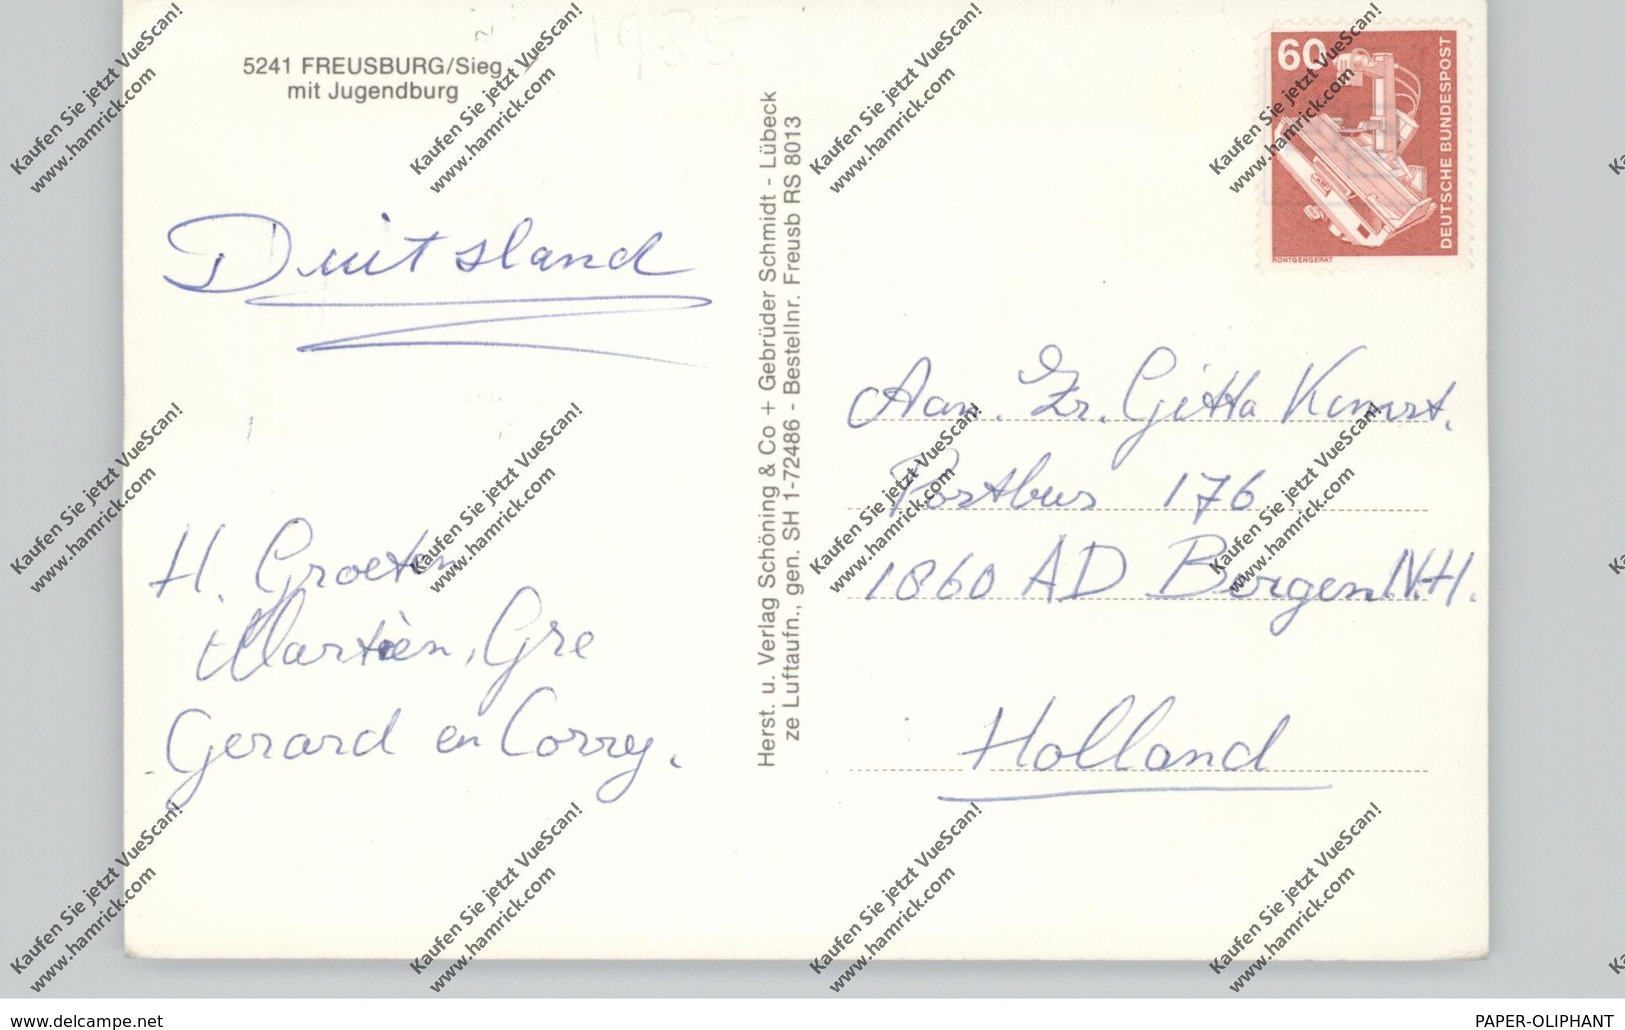 5241 FREUSBURG/Sieg
mit Jugendburg
1985
60
DEUTSCHE BUNDESPOST
RÖNTGENGERÄT
Duitsland
H. Groeten
Martien, Gre
Gerard en Corry.
Herst. u. Verlag Schöning & Co + Gebrüder Schmidt - Lübeck
ze Luftaufn., gen. SH 1-72486 - Bestellnr. Freusb RS 8013
Aan. Zr. Gitta
Postbus 176
1860 AD Bergen N.H.
Holland
Kaufen Sie jetzt VueScan!
www.hamrick.com
www.delcampe.net
PAPER-OLIPHANT